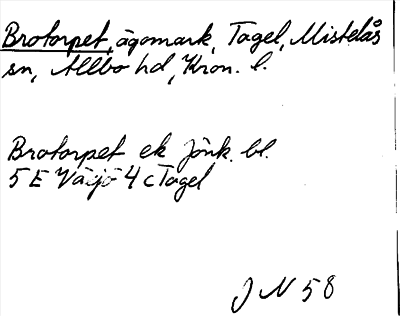 Brotorpet, ägomark, Tagel, Mistelås
sn, Allbo hd, Kron. l.
Brotorpet ek Jönk. bl.
5 E Växjö 4 c Tagel
J N 58